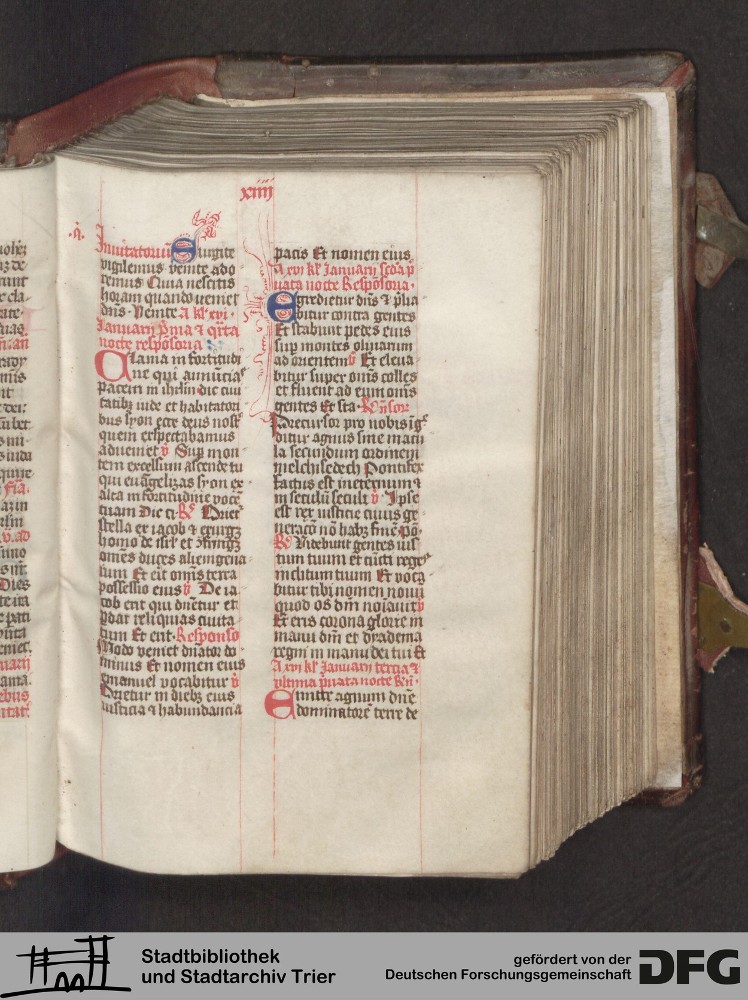 xiiii
Inuitatoriū Surgite
vigilemus venite ado
remus Quia nescitis
horam quando veniet
dn̄s · Venite A kl̄ xvi ·
Januarij p̄ma & q̄rta
nocte resposoria
Clama in fortitudi
ne qui annūcias
pacem in ihrl̄m dic ciui
tatib; iude et habitatori
bus syon ecce deus nost̄
quem exspectabamus
adueniet v̄ Sup̄ mon
tem excelsum ascende tu
qui euāgelizas syon ex
alta in fortitudine vocē
tuam Dic ci · R̄ Oriet
stella ex iacob & exurg;
homo de isrl̄ et ꝯfring;
omēs duces aliemgena
rum Et erit omīs terra
possessio eius v̄ De ia
cob erit qui dn̄etur et
p̄dat reliquias ciuita
tum Et erit · Responso
Modo veniet dn̄ator do
minus Et nomen eius
emanuel vocabitur v̄
Orietur in dieb; eius
iusticia & habundancia
pacis Et nomen eius
A xvj kl̄ Januarij scd̄a p̄
uata nocte Respōsoria ·
Egredietur dn̄s & p̄lia
bitur contra gentes
Et stabunt pedes eius
sup̄ montes oliuarum
ad orientem v̄ Et eleua
bitur super om̄s colles
et fluent ad eum om̄s
gentes Et sta · R̄n̄sor
Precursor pro nobis ī ḡ
ditur agnus sine macu
la secundum ordinem
melchisedech Pontifex
factus est ineternum &
in seculū seculi v̄ Ipse
est rex iusticie cuius ge
neracō nō habz finē · Pō ·
R̄ Videbunt gentes ius
tum tuum et cūcti reges
inclitum tuum Et voca
bitur tibi nomen nouū
quod os dn̄i noīauit v̄
Et eris corona glorie in
manu dn̄i et dyadema
regni in manu dei tui Et
A xvj kl̄ Januarij tercia &
vltima p̄uata nocte R̄n̄ ·
Emitte agnum dn̄e
dominatorē terre de
Stadtbibliothek
und Stadtarchiv Trier
gefördert von der
Deutschen Forschungsgemeinschaft
DFG